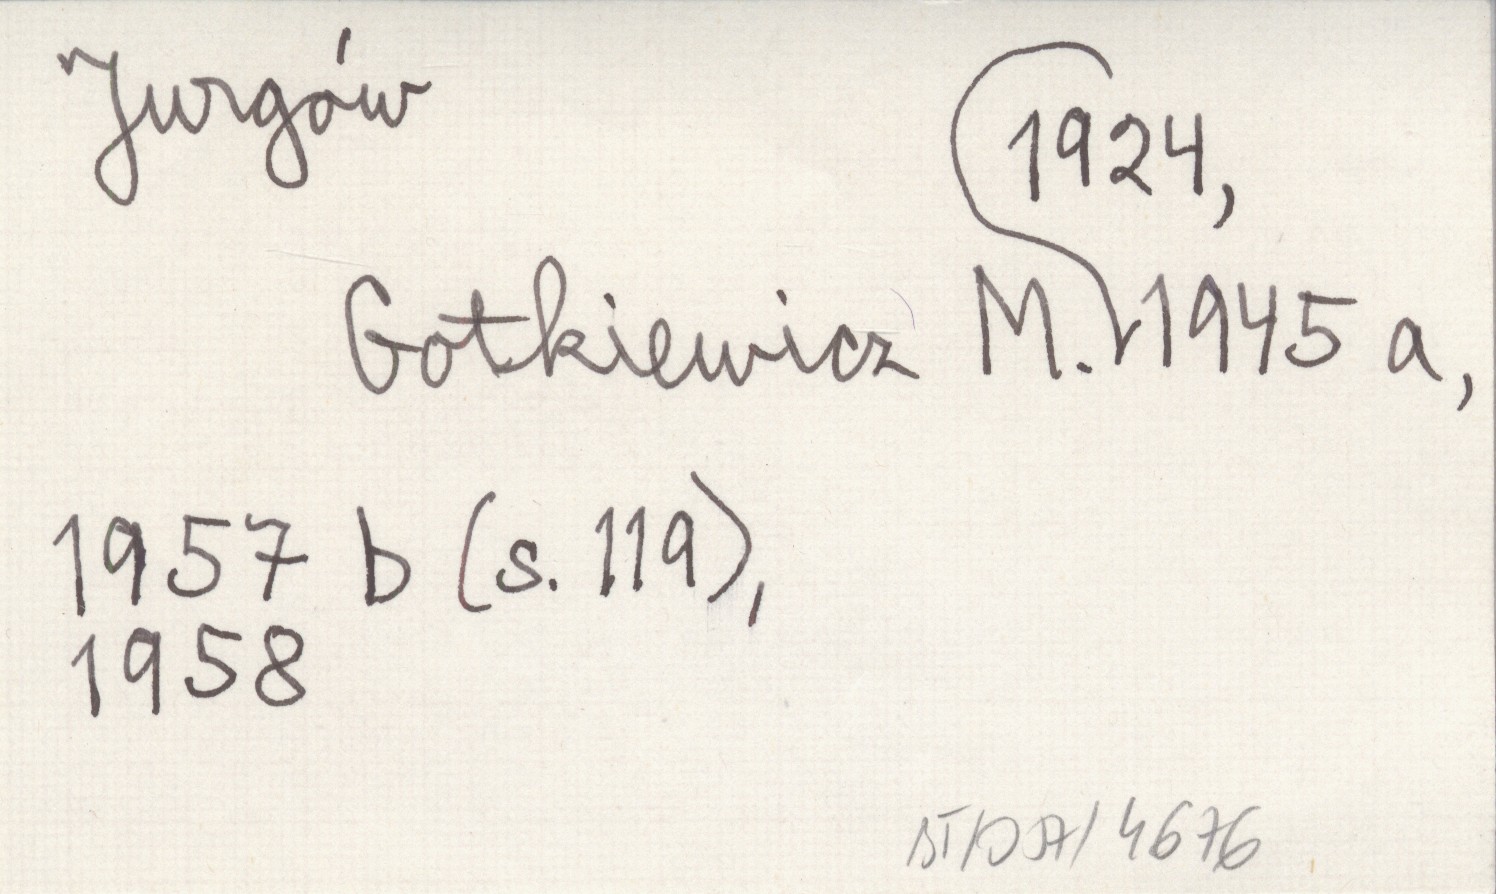 Jurgów
1924,
Gotkiewicz M. 1945 a,
1957 b (s. 119),
1958
4676